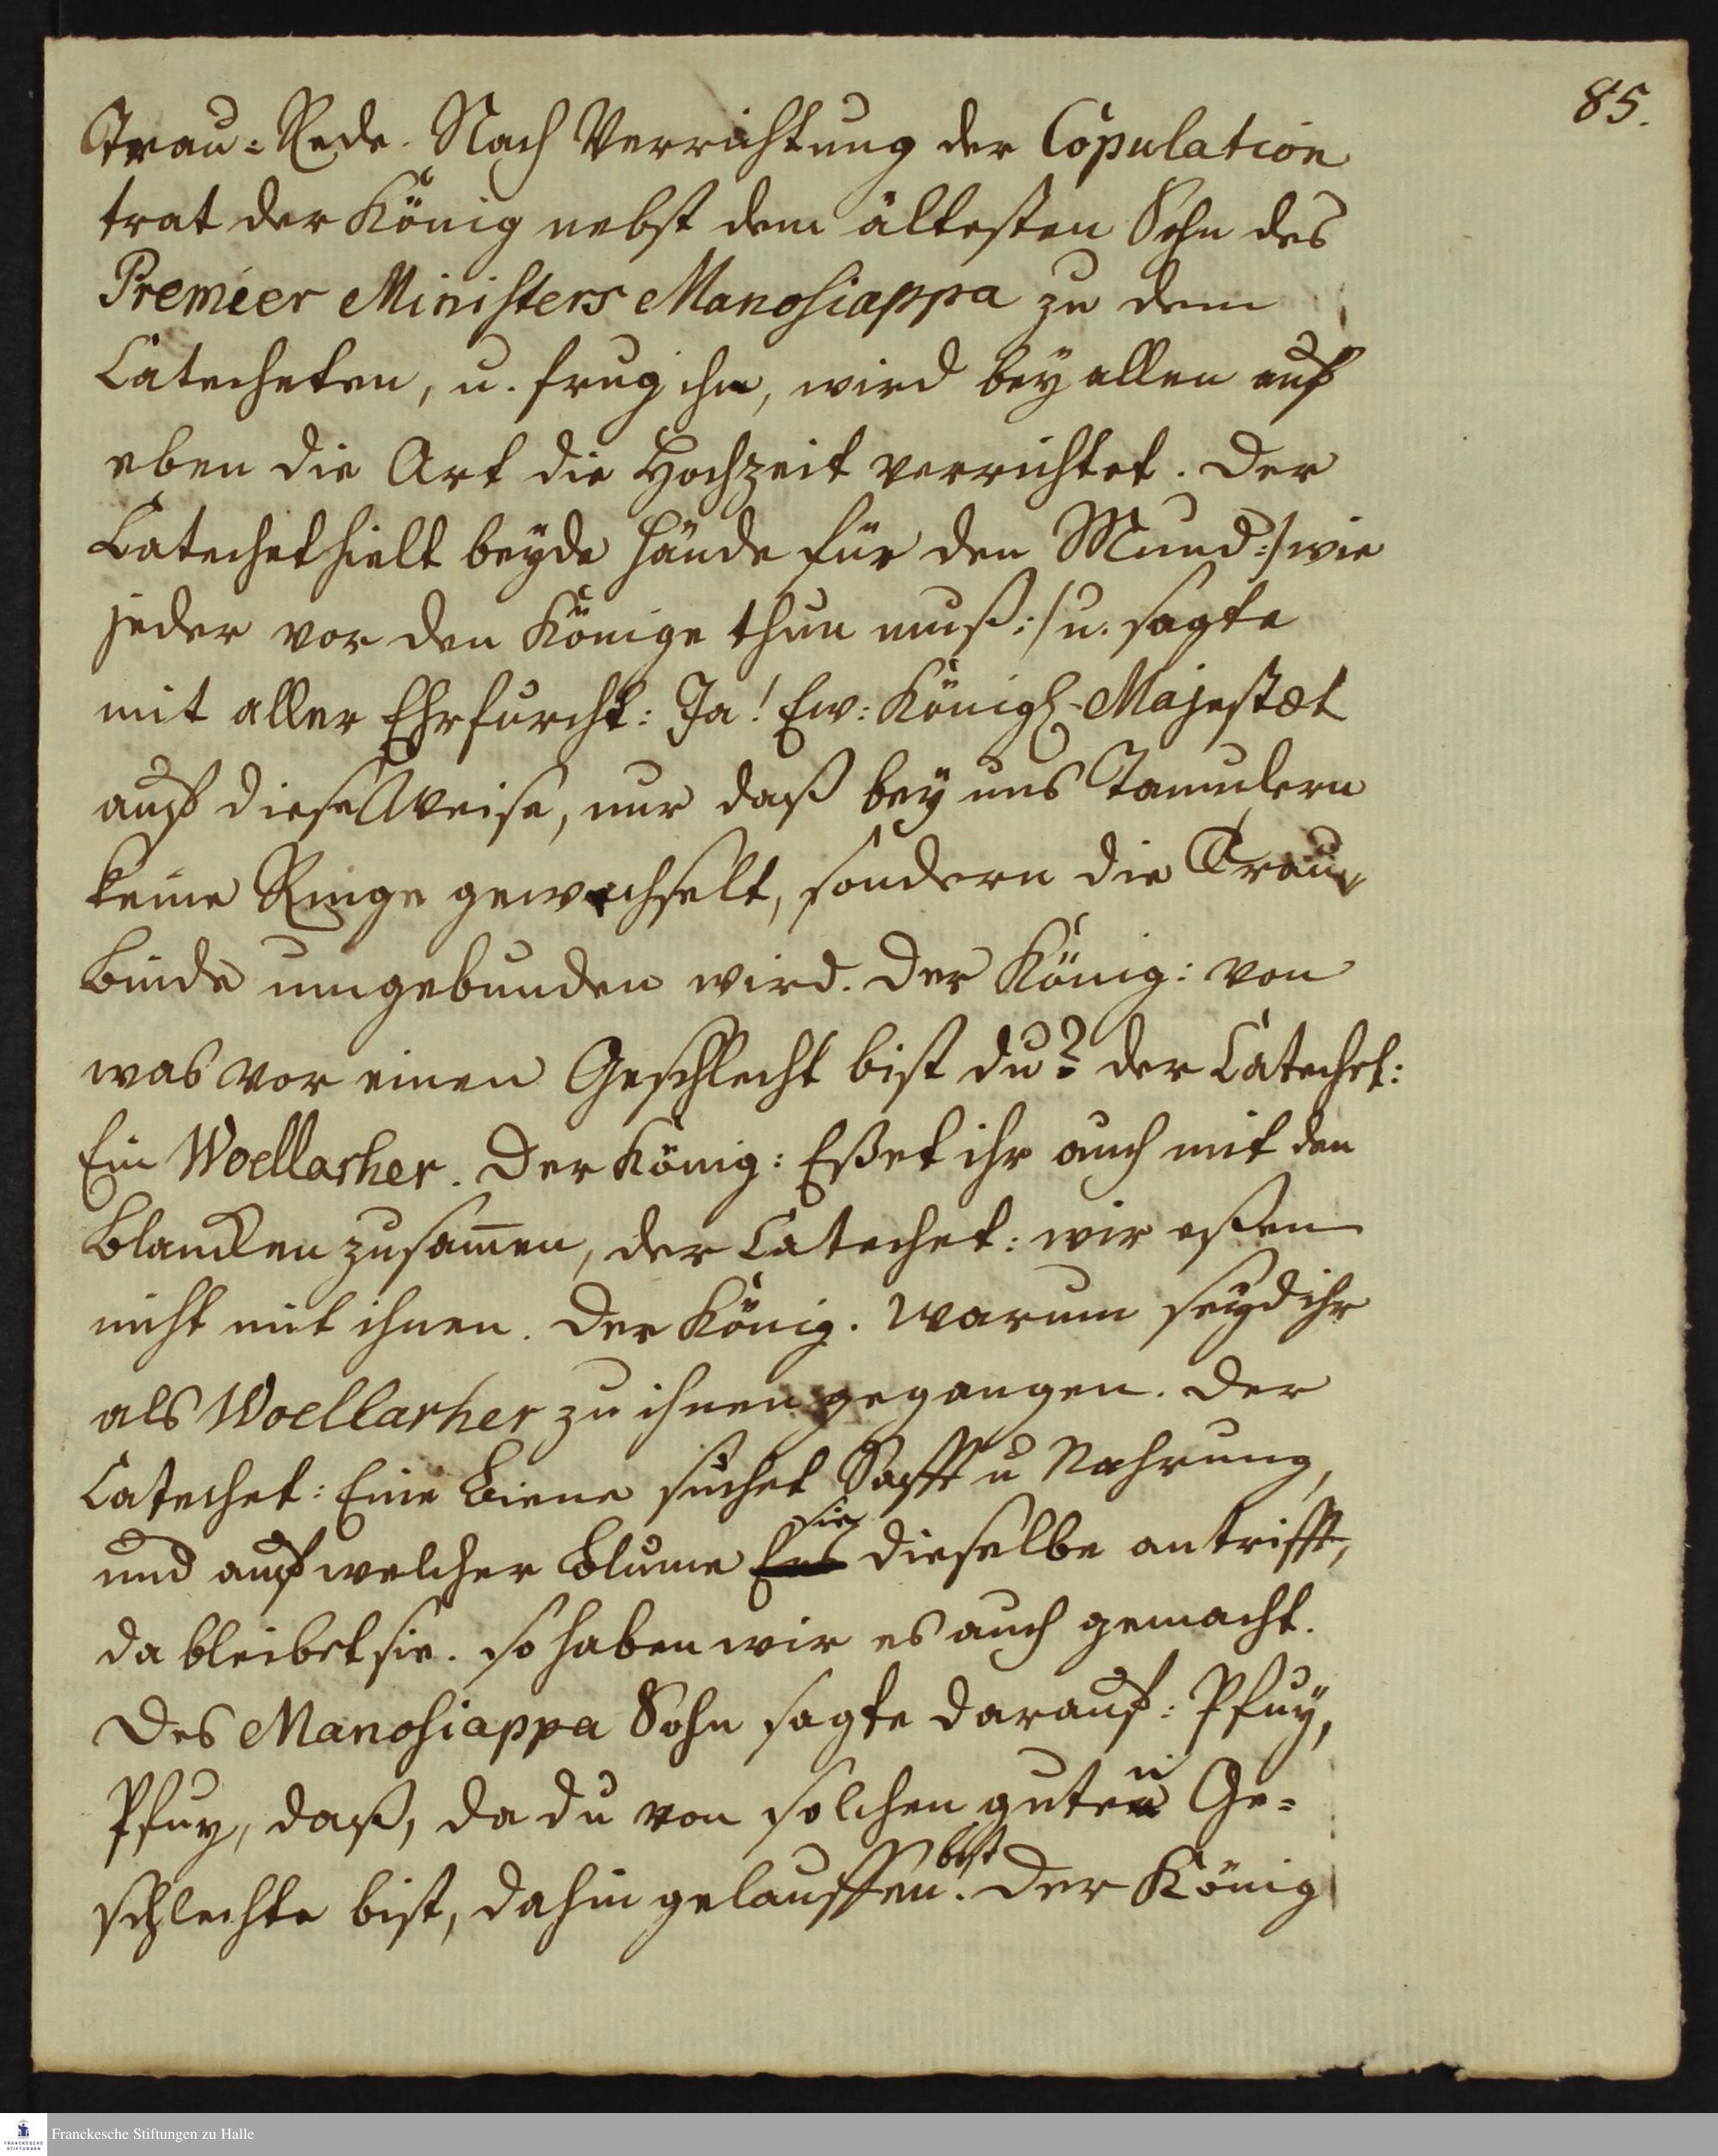 85.
Trau-Rede. Nach Verrichtung der Copulation
trat der König nebst dem ältesten Sohn des
Premier Ministers Manosiappa zu dem
Catecheten, u. frug ihn, wird bey allen auf
eben die Art die Hochzeit verrichtet. Der
Catechet hielt beyde Hände für den Mund :/ wie
jeder vor den Könige thun muß :/ u. sagte
mit aller Ehrfurcht: Ja! Ew: Königl. Majestæt
auf diese Weise, nur daß bey uns Tamulern
keine Ringe gewechselt, sondern die Trau-
Binde umgebunden wird. Der König: von
was vor einen Geschlecht bist du? der Catechet:
Ein Woellarher. Der König: Eßet ihr auch mit den
Blancken zusam̄en, der Catechet: wir eßen
nicht mit ihnen. Der König. Warum seyd ihr
als Woellarher zu ihnen gegangen. Der
Catechet: Eine Biene suchet Safft u Nahrung,
und auf welcher Blume sie dieselbe antrifft,
da bleibet sie. so haben wir es auch gemacht.
Des Manosiappa Sohn sagte darauf: Pfuy,
Pfuy, daß, da du von solchen guten Ge-
schlechte bist, dahin gelauffen bist. Der König
Franckesche Stiftungen zu Halle